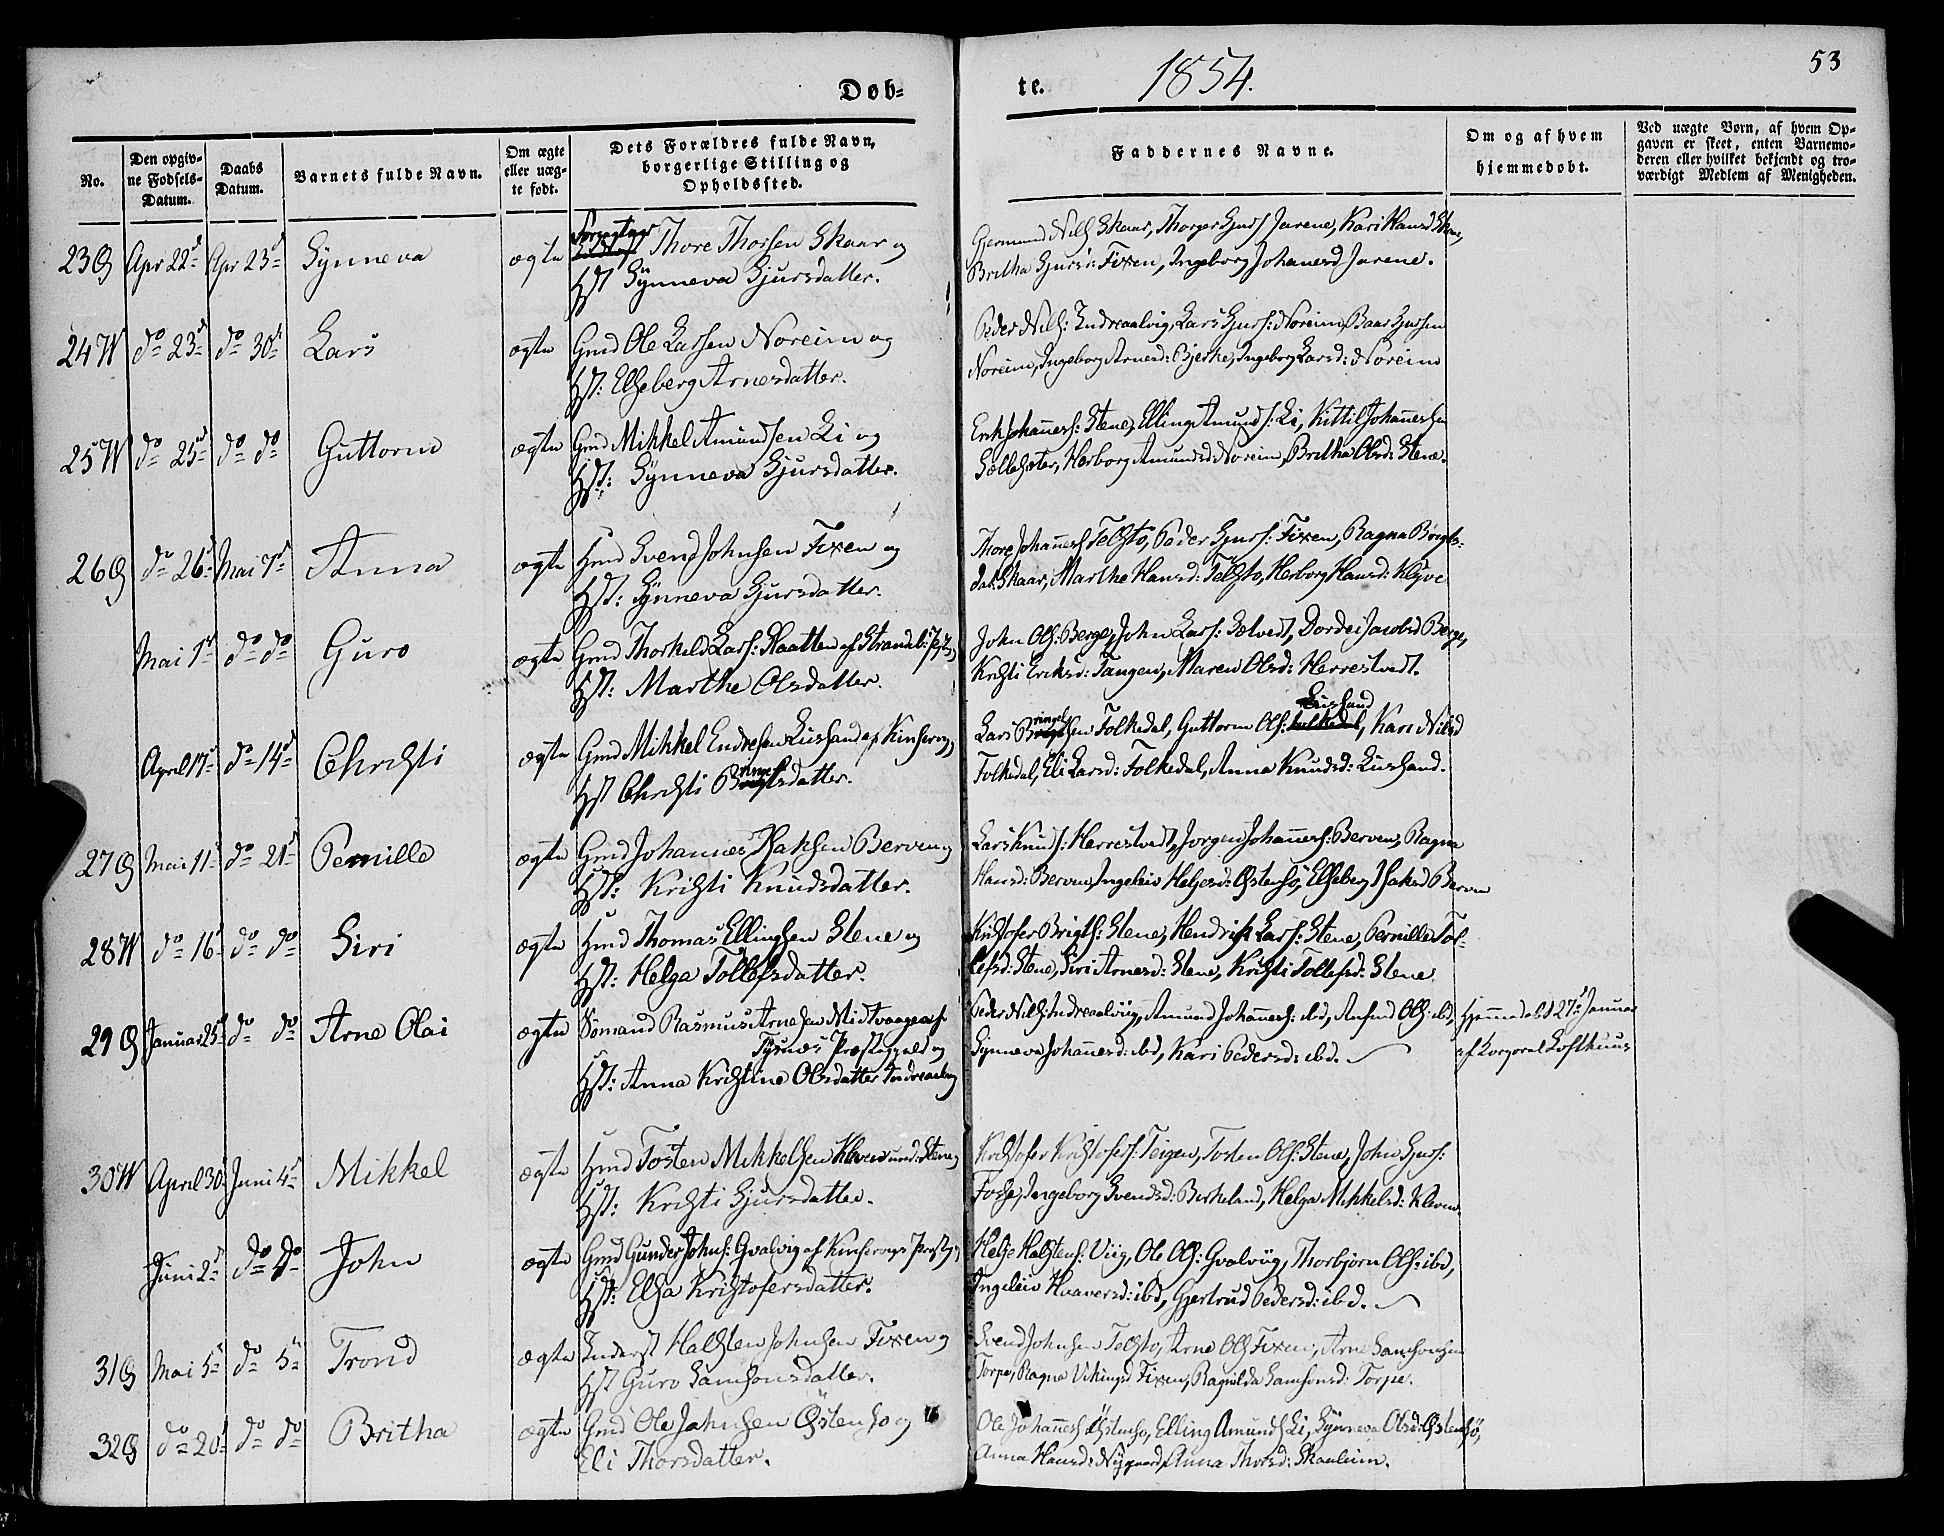 53
Døb-
te.
1854.
No.
Den opgiv-
ne Fødsels-
Datum.
Daabs
Datum.
Barnets fulde Navn.
Om ægte
eller uæg-
te født.
Dets Forældres fulde Navn,
borgerlige Stilling og
Opholdssted.
Faddernes Navne.
Om og af hvem
hjemmedøbt.
Ved uægte Børn, af hvem Op-
gaven er skeet, enten Barnemo-
deren eller hvilket bekjendt og tro-
værdigt Medlem af Menigheden.
23 Apr 22d Apr 23d Synneva ægte Thore Thorsen Skaar og
Hst Synneva Sjursdatter.
Gjermund Nils Skaar, Thorger Sjurs Jarene, Kari Hansd Skaar,
Britha Sjursd: Fixen, Ingeborg Johanesd Jarene.
24 W do 23d do 30d Lars ægte Gmd Ole Larsen Noreim og
Hst: Elseberg Arnesdatter.
Peder Nils: Indreaalvig, Lars Sjurs: Noreim, Baar Sjursen
Noreim, Ingeborg Arnesd: Bjerke, Ingeborg Larsd: Noreim
25 W do 25d do do Guttorm ægte Gmd Mikkel Amundsen Li og
Hst: Synneva Sjursdatter.
Erik Johannes: Stene, Elling Amunds: Li, Kittil Johannessen
Herborg Amundsd Noreim, Britha Olsd: Stene.
26 do 26d Mai 7d Anna ægte Hmd Svend Johnsen Fixen og
Hst: Synneva Sjursdatter.
Thore Johannes Telsto, Peder Sjurs: Fixen, Ragna Brigts-
dat: Skaar, Marthe Hansd: Telsto, Herborg Hansd: Klyve
Mai 1d do do Guro ægte Gmd Thorkeld Lars: Haatten af Strandeb:
Hst: Marthe Olsdatter.
John Ols: Berge, John Lars: Sætvedt, Dordei Jacobsd Berge,
Kristi Eriksd: Tangen, Maren Olsd: Herrestvedt.
April 17d do 14d Christi ægte Gmd Mikkel Endresen Lussand af Kinservig
Hst Christi Bringelsdatter.
Lussand
Lars Bringelsen Folkedal, Guttorm Ols: Folkedal, Kari Nilsd
Folkedal, Eli Larsd: Folkedal, Anna Knudsd: Lussand.
27 Mai 11d do 21d Pernille ægte Gmd Johannes Isaksen Berven og
Hst: Kristi Knudsdatter.
Lars Knuds: Herrestvedt, Jørgen Johannes: Berven, Ragna
Hansd: Berven, Ingeleiv Heljesd: Østensø, Elseberg Isaksd Berven
28 W do 16d do do Siri ægte Hmd Thomas Ellingsen Stene og
Hst: Helga Tollefsdatter.
Kristofer Brigts: Stene, Hendrik Lars: Stene, Pernille Tol-
lefsd: Stene, Siri Arnesd: Stene, Kristi Tollefsd: Stene.
29 Januar 25d do do Arne Olai ægte Sømand Rasmus Arnesen Midtvaage af
Tysnes Præstegjeld og
Hst: Anna Kristine Olsdatter Indreaalvig
Peder Nils: Indreaalvig, Amund Johannes: ibd, Ols: ibd,
Synneva Johannesd: ibd, Kari Pedersd: ibd.
Hjemmedøbt 27d Januar
af Korporal Lofthuus
30 W April 30d Juni 4d Mikkel ægte Hmd Tosten Mikkelsen Kleven und: Stene og
Hst: Kristi Sjursdatter.
Kristofer Kristofers: Teigen, Tosten Ols: Stene, John Sjurs:
Fosse, Ingeborg Svendsd: Birkeland, Helga Mikkelsd: Kleven.
Juni 2d do 4d John ægte Gmd Gunder Johns: Gvalvig af Kinservigs Præstg
Hst: Elsa Kristofersdatter.
Helje Halstens: Viig, Ole Ols: Gvalviig, Thorbjørn Ols: ibd,
Ingeleiv Havarsd: ibd, Gjertrud Pedersd: ibd.
31 Mai 5d do 5d Trond ægte Inderst Halsten Johnsen Fixen og
Hst Guro Samsonsdatter.
Svend Johnsen Telsto, Arne Ols Fixen, Arne Samsonsen
Torpe, Ragna Vikingsd Fixen, Ragnilda Samsonsd: Torpe.
32 do 20d do do Britha ægte Gmd Ole Johnsen Østensø og
Eli Thorsdatter.
Ole Johannes Østensø, Elling Amunds Li, Synneva Olsd: Østensø,
Anna Hansd: Nygaard, Anna Thorsd: Skaaleim.